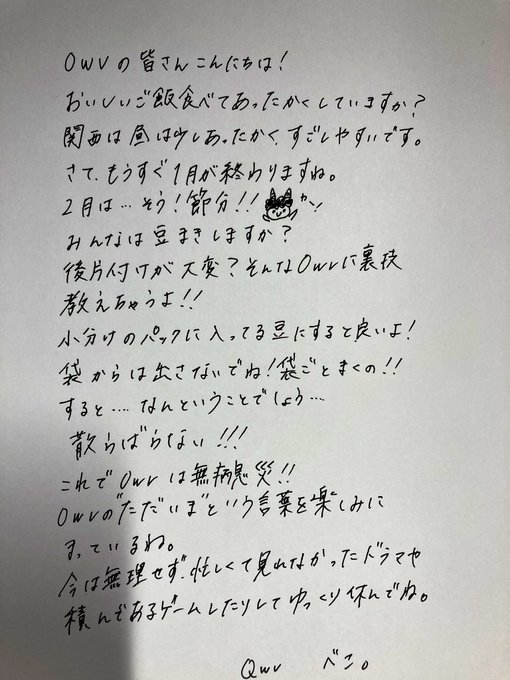 OWVの皆さんこんにちは!
おいしいご飯食べてあったかくしていますか?
関西は昼は少しあったかく、すごしやすいです。
さて、もうすぐ1月が終わりますね。
2月は…そう!節分!!
みんなは豆まきしますか?
後片付けが大変?そんなOwvに裏技
教えちゃうよ!!
小分けのパックに入ってる豆にすると良いよ!
袋からは出さないでね!袋ごとまくの!!
すると….なんということでしょう…
散らばらない!!!
これでOwvは無病息災!!
Owvの"ただいま"という言葉を楽しみに
まっているね。
今は無理せず、忙しくて見れなかったドラマや
積んであるゲームしたりしてゆっくり休んでね。
Qwv べこ。